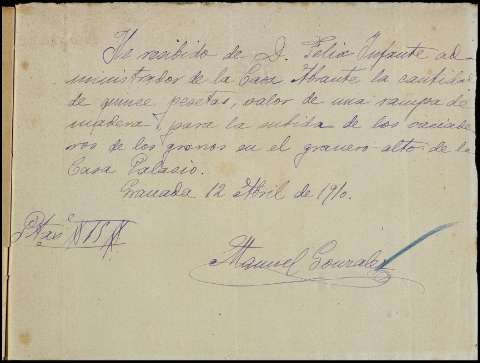 He recibido de D. Felix Infante ad-
ministrador de la Casa Abrante la cantidad
de quince pesetas, valor de una rampa de
madera para la subida de los vaciade
ros de los granos en el granero alto de la
Casa Palacio.
Granada 12 Abril de 1910.
Manuel Gonzalez